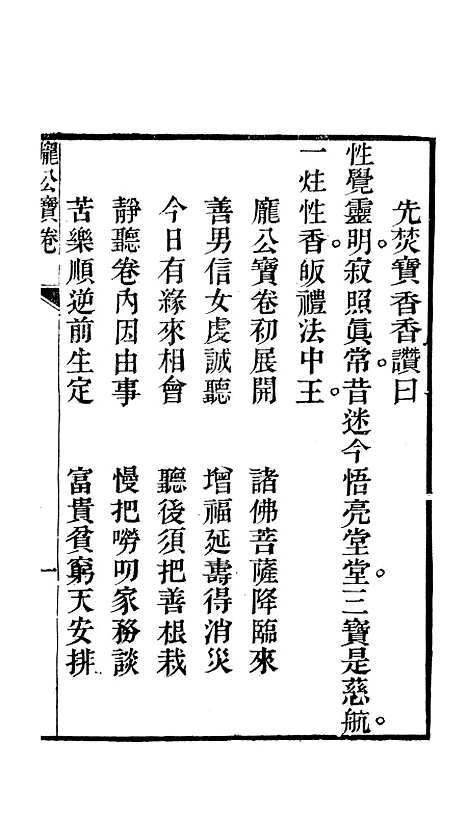 先焚寶香香讚曰
性覺靈明。寂照眞常。昔迷今悟亮堂堂。三寶是慈航。
一炷性香。皈禮法中王。
龐公寶卷初展開　諸佛菩薩降臨來
善男信女虔誠聽　增福延壽得消災
今日有緣來相會　聽後須把善根栽
靜聽卷內因由事　慢把嘮叨家務談
苦樂順逆前生定　富貴貧窮天安排
龐公寶卷
一